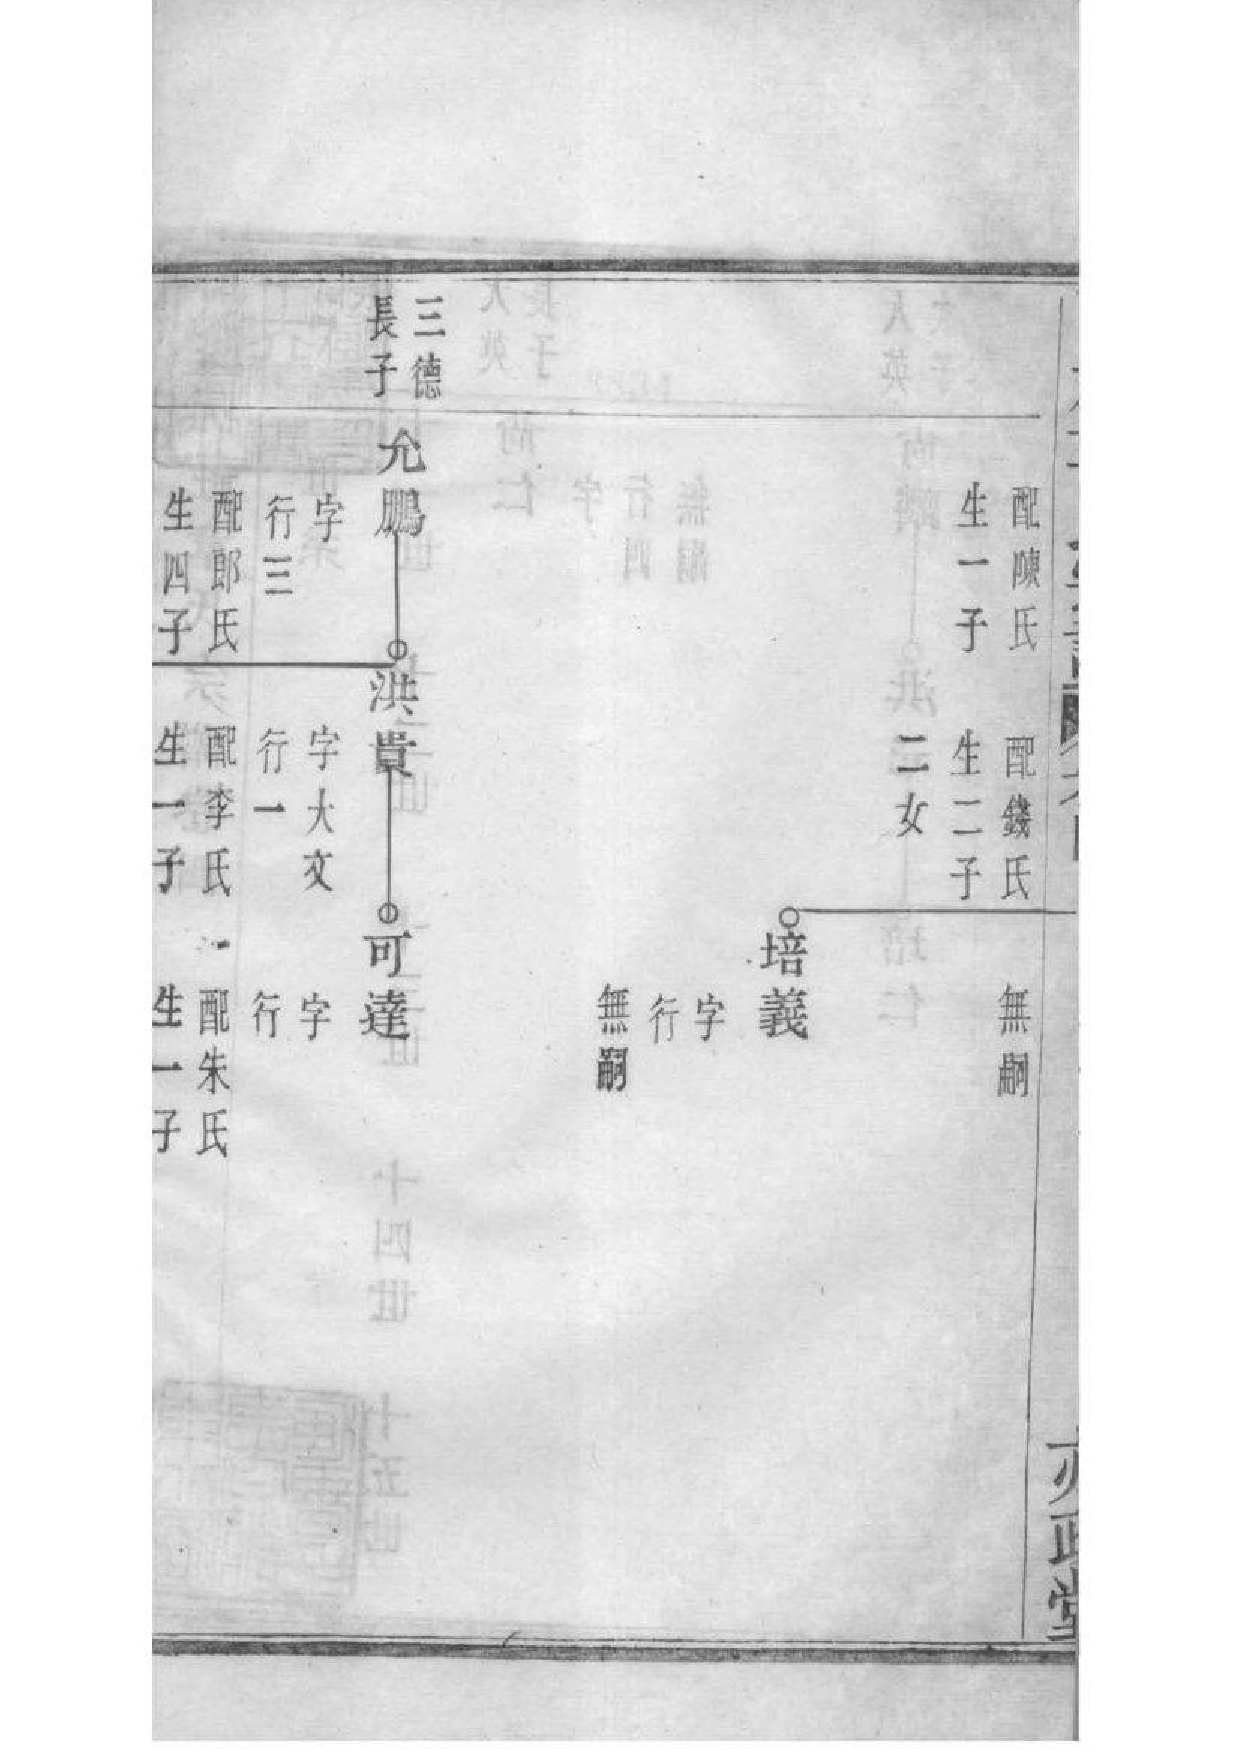 亦政堂
配陳氏
生一子
配錢氏
生二子
二女
無嗣
培義
字
行
無嗣
三德
長子
允鵬
字
行三
配郎氏
生四子
洪貴
字大文
行一
配李氏
生一子
可達
字
行
配朱氏
生一子